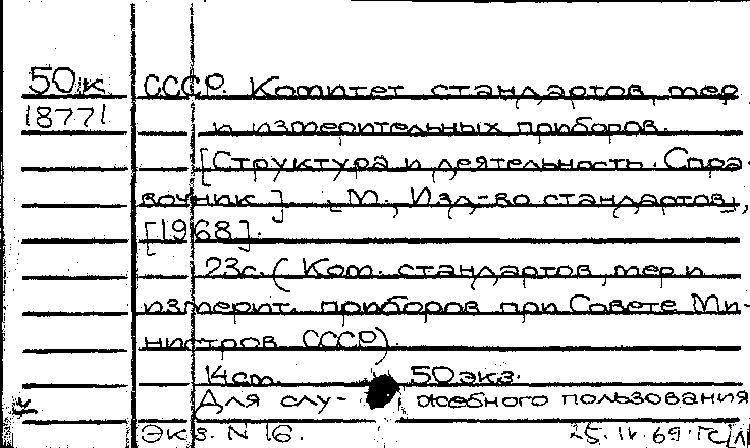 50к СССР. Комитет стандартов, мер
18771 и измерительных приборов.
[Структура и деятельность. Спра-
вочник]. М., Изд-во стандартов,
[1968].
23с. (Ком. стандартов, мер и
измерит. приборов при Совете Ми-
нистров СССР)
14см. 50 экз.
Для слу- жебного пользования
Экз. N 16. 25.IV.69.